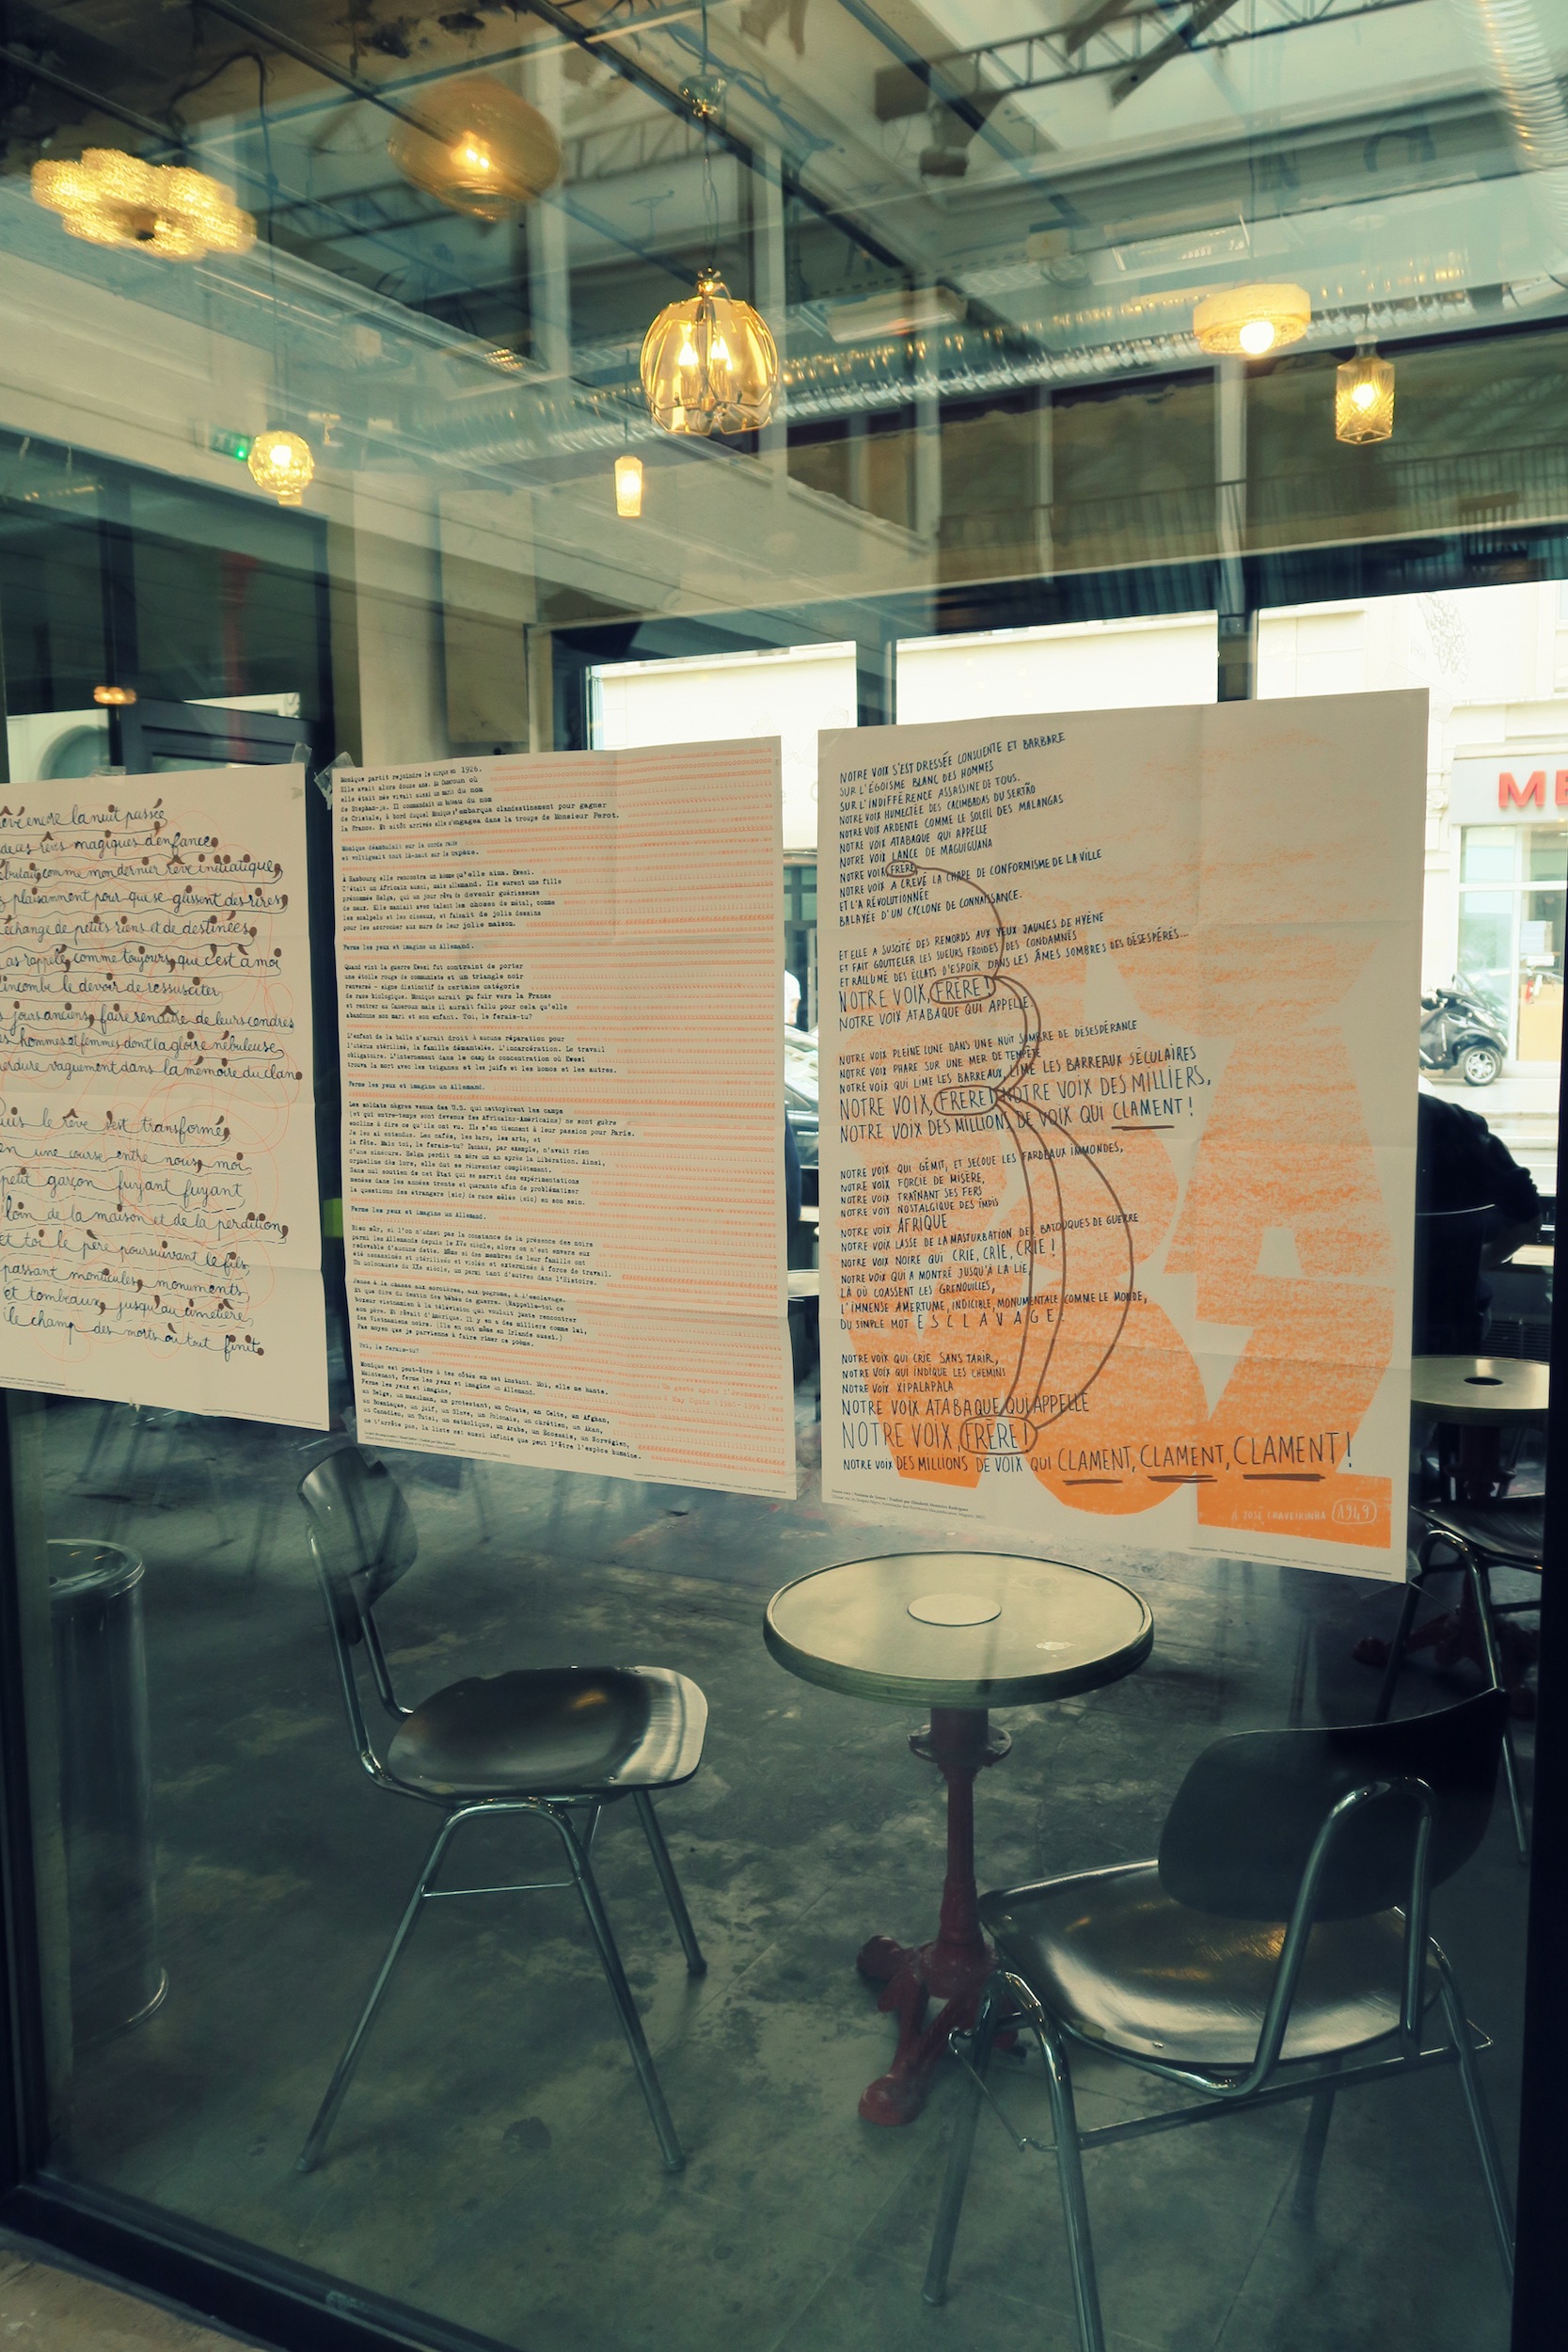 encore la nuit passée
rêves magiques d'enfance,
comme mon dernier rêve initiatique,
plaisamment pour que se glissent des rires,
échange de petits riens et de destinées,
as rappelé, comme toujours, que c'est à moi
incombe le devoir de ressusciter
jours anciens, faire rendre de leurs cendres
hommes et femmes dont la gloire nébuleuse
perdure vaguement dans la mémoire du clan.
le rêve s'est transformé,
en une course entre nous, moi
petit garçon fuyant fuyant,
loin de la maison et de la perdition,
et toi le père poursuivant le fils,
passant monticules, monuments
et tombeaux, jusqu'au cimetière,
le champ des morts où tout finit.
Monique partit rejoindre le cirque en 1926.
Elle avait alors douze ans. Le Cameroun où
elle était née vivait aussi un mars du nom
de Cristale, à bord duquel Monique s'embarqua clandestinement pour gagner
la France. Et sitôt arrivée elle s'engagea dans la troupe de Monsieur Perot.
Monique déambulait sur la corde raide
et voltigeait tout là-haut sur le trapèze.
À Hasbourg elle rencontra un homme qu'elle aima. Kwesi.
C'était un Africain aussi, mais allemand. Ils eurent une fille
prénommée Helga, qui un jour rêva de devenir guérisseuse
de maux. Elle maniait avec talent les choses de métal, comme
les scalpels et les ciseaux, et faisait de jolis dessins
pour les accrocher aux murs de leur jolie maison.
Ferme les yeux et imagine un Allemand.
Quand vint la guerre Kwesi fut contraint de porter
une étoile rouge de communiste et un triangle noir
renversé - signe distinctif de certaine catégorie
de race biologique. Monique aurait pu fuir vers la France
et rentrer au Cameroun mais il aurait fallu pour cela qu'elle
abandonne son mari et son enfant. Toi, le ferais-tu?
L'enfant de la balle n'aurait droit à aucune réparation pour
l'utérus stérilisé, la famille démantelée. L'incarcération. Le travail
obligatoire. L'internement dans le camp de concentration où Kwesi
trouva la mort avec les tsiganes et les juifs et les homos et les autres.
Ferme les yeux et imagine un Allemand.
Les soldats nègres venus des U.S. qui nettoyèrent les camps
(et qui entre-temps sont devenus des Africains-Américains) ne sont guère
enclins à dire ce qu'ils ont vu. Ils s'en tiennent à leur passion pour Paris.
Je les ai entendus. Les cafés, les bars, les arts, et
la fête. Mais toi, le ferais-tu? Dachau, par exemple, n'avait rien
d'une sinécure. Helga perdit sa mère un an après la Libération. Ainsi,
orpheline dès lors, elle dut se réinventer complètement.
Sans nul soutien de cet État qui se servit des expérimentations
menées dans les années trente et quarante afin de problématiser
la questions des étrangers (sic) de race mêlée (sic) en son sein.
Ferme les yeux et imagine un Allemand.
Bien sûr, si l'on n'admet pas la constance de la présence des noirs
parmi les Allemands depuis le XVe siècle, alors on n'est envers eux
redevable d'aucune dette. Même si des membres de leur famille ont
été assassinés et stérilisés et violés et exterminés à force de travail.
Un holocauste du XXe siècle, un parmi tant d'autres dans l'Histoire.
Pense à la chasse aux sorcières, aux pogroms, à l'esclavage.
Et que dire du destin des bébés de guerre. (Rappelle-toi ce
boxeur vietnamien à la télévision qui voulait juste rencontrer
son père. Et rêvait d'Amérique. Il y en a des milliers comme lui,
des Vietnamiens noirs. (Ils en ont même en Irlande aussi.)
Pas moyen que je parvienne à faire rimer ce poème.
Toi, le ferais-tu?
Monique est peut-être à tes côtés en cet instant. Moi, elle me hante.
Maintenant, ferme les yeux et imagine un Allemand.
Ferme les yeux et imagine,
un Belge, un musulman, un protestant, un Croate, un Celte, un Afghan,
un Bosniaque, un juif, un Slave, un Polonais, un chrétien, un Akan,
un Canadien, un Tutsi, un catholique, un Arabe, un Écossais, un Norvégien,
ne t'arrête pas, la liste est aussi infinie que peut l'être l'espèce humaine.
NOTRE VOIX S'EST DRESSÉE CONSCIENTE ET BARBARE
SUR L'ÉGOÏSME BLANC DES HOMMES
SUR L'INDIFFÉRENCE ASSASSINE DE TOUS.
NOTRE VOIX HUMECTÉE DES CACIMBADAS DU SERTÃO
NOTRE VOIX ARDENTE COMME LE SOLEIL DES MALANGAS
NOTRE VOIX ATABAQUE QUI APPELLE
NOTRE VOIX LANCE DE MAGUIGUANA
NOTRE VOIX FRÈRE
NOTRE VOIX A CREVÉ LA CHAPE DE CONFORMISME DE LA VILLE
ET L'A RÉVOLUTIONNÉE
BALAYÉE D'UN CYCLONE DE CONNAISSANCE.
ET ELLE A SUSCITÉ DES REMORDS AUX YEUX JAUNES DE HYÈNE
ET FAIT GOUTTELER LES SUEURS FROIDES DES CONDAMNÉS
ET RALLUMÉ DES ÉCLATS D'ESPOIR DANS LES ÂMES SOMBRES DES DÉSESPÉRÉS...
NOTRE VOIX, FRÈRE!
NOTRE VOIX ATABAQUE QUI APPELLE.
NOTRE VOIX PLEINE LUNE DANS UNE NUIT SOMBRE DE DÉSESPÉRANCE
NOTRE VOIX PHARE SUR UNE MER DE TEMPÊTE
NOTRE VOIX QUI LIME LES BARREAUX, LIME LES BARREAUX SÉCULAIRES
NOTRE VOIX, FRÈRE! NOTRE VOIX DES MILLIERS,
NOTRE VOIX DES MILLIONS DE VOIX QUI CLAMENT!
NOTRE VOIX QUI GÉMIT, ET SECOUE LES FARDEAUX IMMONDES,
NOTRE VOIX FORCIE DE MISÈRE,
NOTRE VOIX TRAÎNANT SES FERS
NOTRE VOIX NOSTALGIQUE DES IMPIS
NOTRE VOIX AFRIQUE
NOTRE VOIX LASSE DE LA MASTURBATION DES BATOUQUES DE GUERRE
NOTRE VOIX NOIRE QUI CRIE, CRIE, CRIE!
NOTRE VOIX QUI A MONTRÉ JUSQU'À LA LIE,
LÀ OÙ COASSENT LES GRENOUILLES,
L'IMMENSE AMERTUME, INDICIBLE, MONUMENTALE COMME LE MONDE,
DU SIMPLE MOT ESCLAVAGE.
NOTRE VOIX QUI CRIE SANS TARIR,
NOTRE VOIX QUI INDIQUE LES CHEMINS
NOTRE VOIX XIPALAPALA
NOTRE VOIX ATABAQUE QUI APPELLE
NOTRE VOIX, FRÈRE!
NOTRE VOIX DES MILLIONS DE VOIX QUI CLAMENT, CLAMENT, CLAMENT!
À JOSÉ CRAVEIRINHA 1949
ME